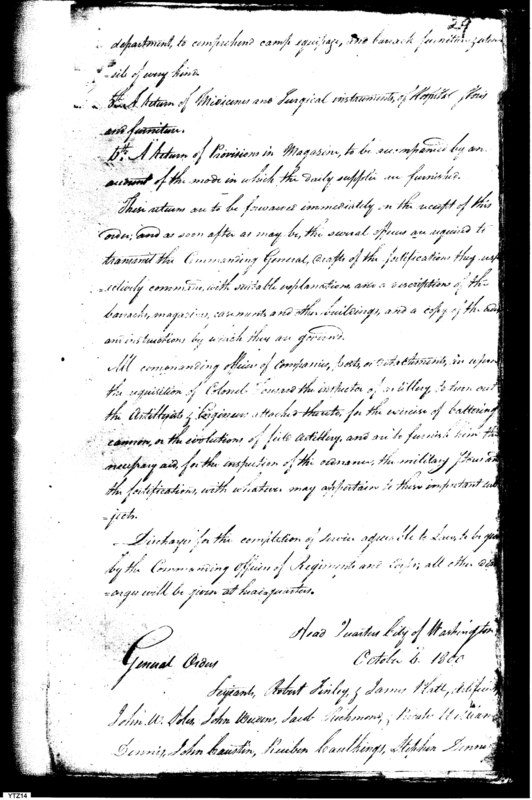 29
department, to comprehend camp equipage, and barrack furniture, uten
sils of every kind.
5th. A Return of Medicines and Surgical instruments, of Hospital Stores
and furniture.
6th. A Return of Provisions in Magazine, to be accompanied by an
account of the mode in which the daily supplies are furnished.
These returns are to be forwarded immediately on the receipt of this
order, and as soon after as may be, the several officers are required to
transmit the Commanding General, drafts of the fortifications they resp
ectively command, with suitable explanations and a description of the
barracks, magazines, casements and other buildings, and a copy of the
and instructions by which they are governed.
All commanding officers of companies, posts, or detachments, are upon
the requisition of Colonel Toussard the instructor of artillery, to turn out
the Artillerists & Engineers attached thereto, for the exercise of battering
cannon, or the evolutions of field Artillery, and are to furnish him the
necessary aid, for the inspection of the ordnance, the military Stores and
the fortifications, with whatever may appertain to these important sub
jects.
Discharges for the completion of service agreeable to Law, to be given
by the Commanding Officers of Regiments and Corps, all other disch
arges will be given at headquarters.
Head Quarters City of Washington
General Orders October 6. 1800
Serjeants, Robert Finley, & James Platt, Artificers
John W. John Jacob Richmond, William
Dennis, John Caustin, Reuben Caulkings, Stephen
YTZ14